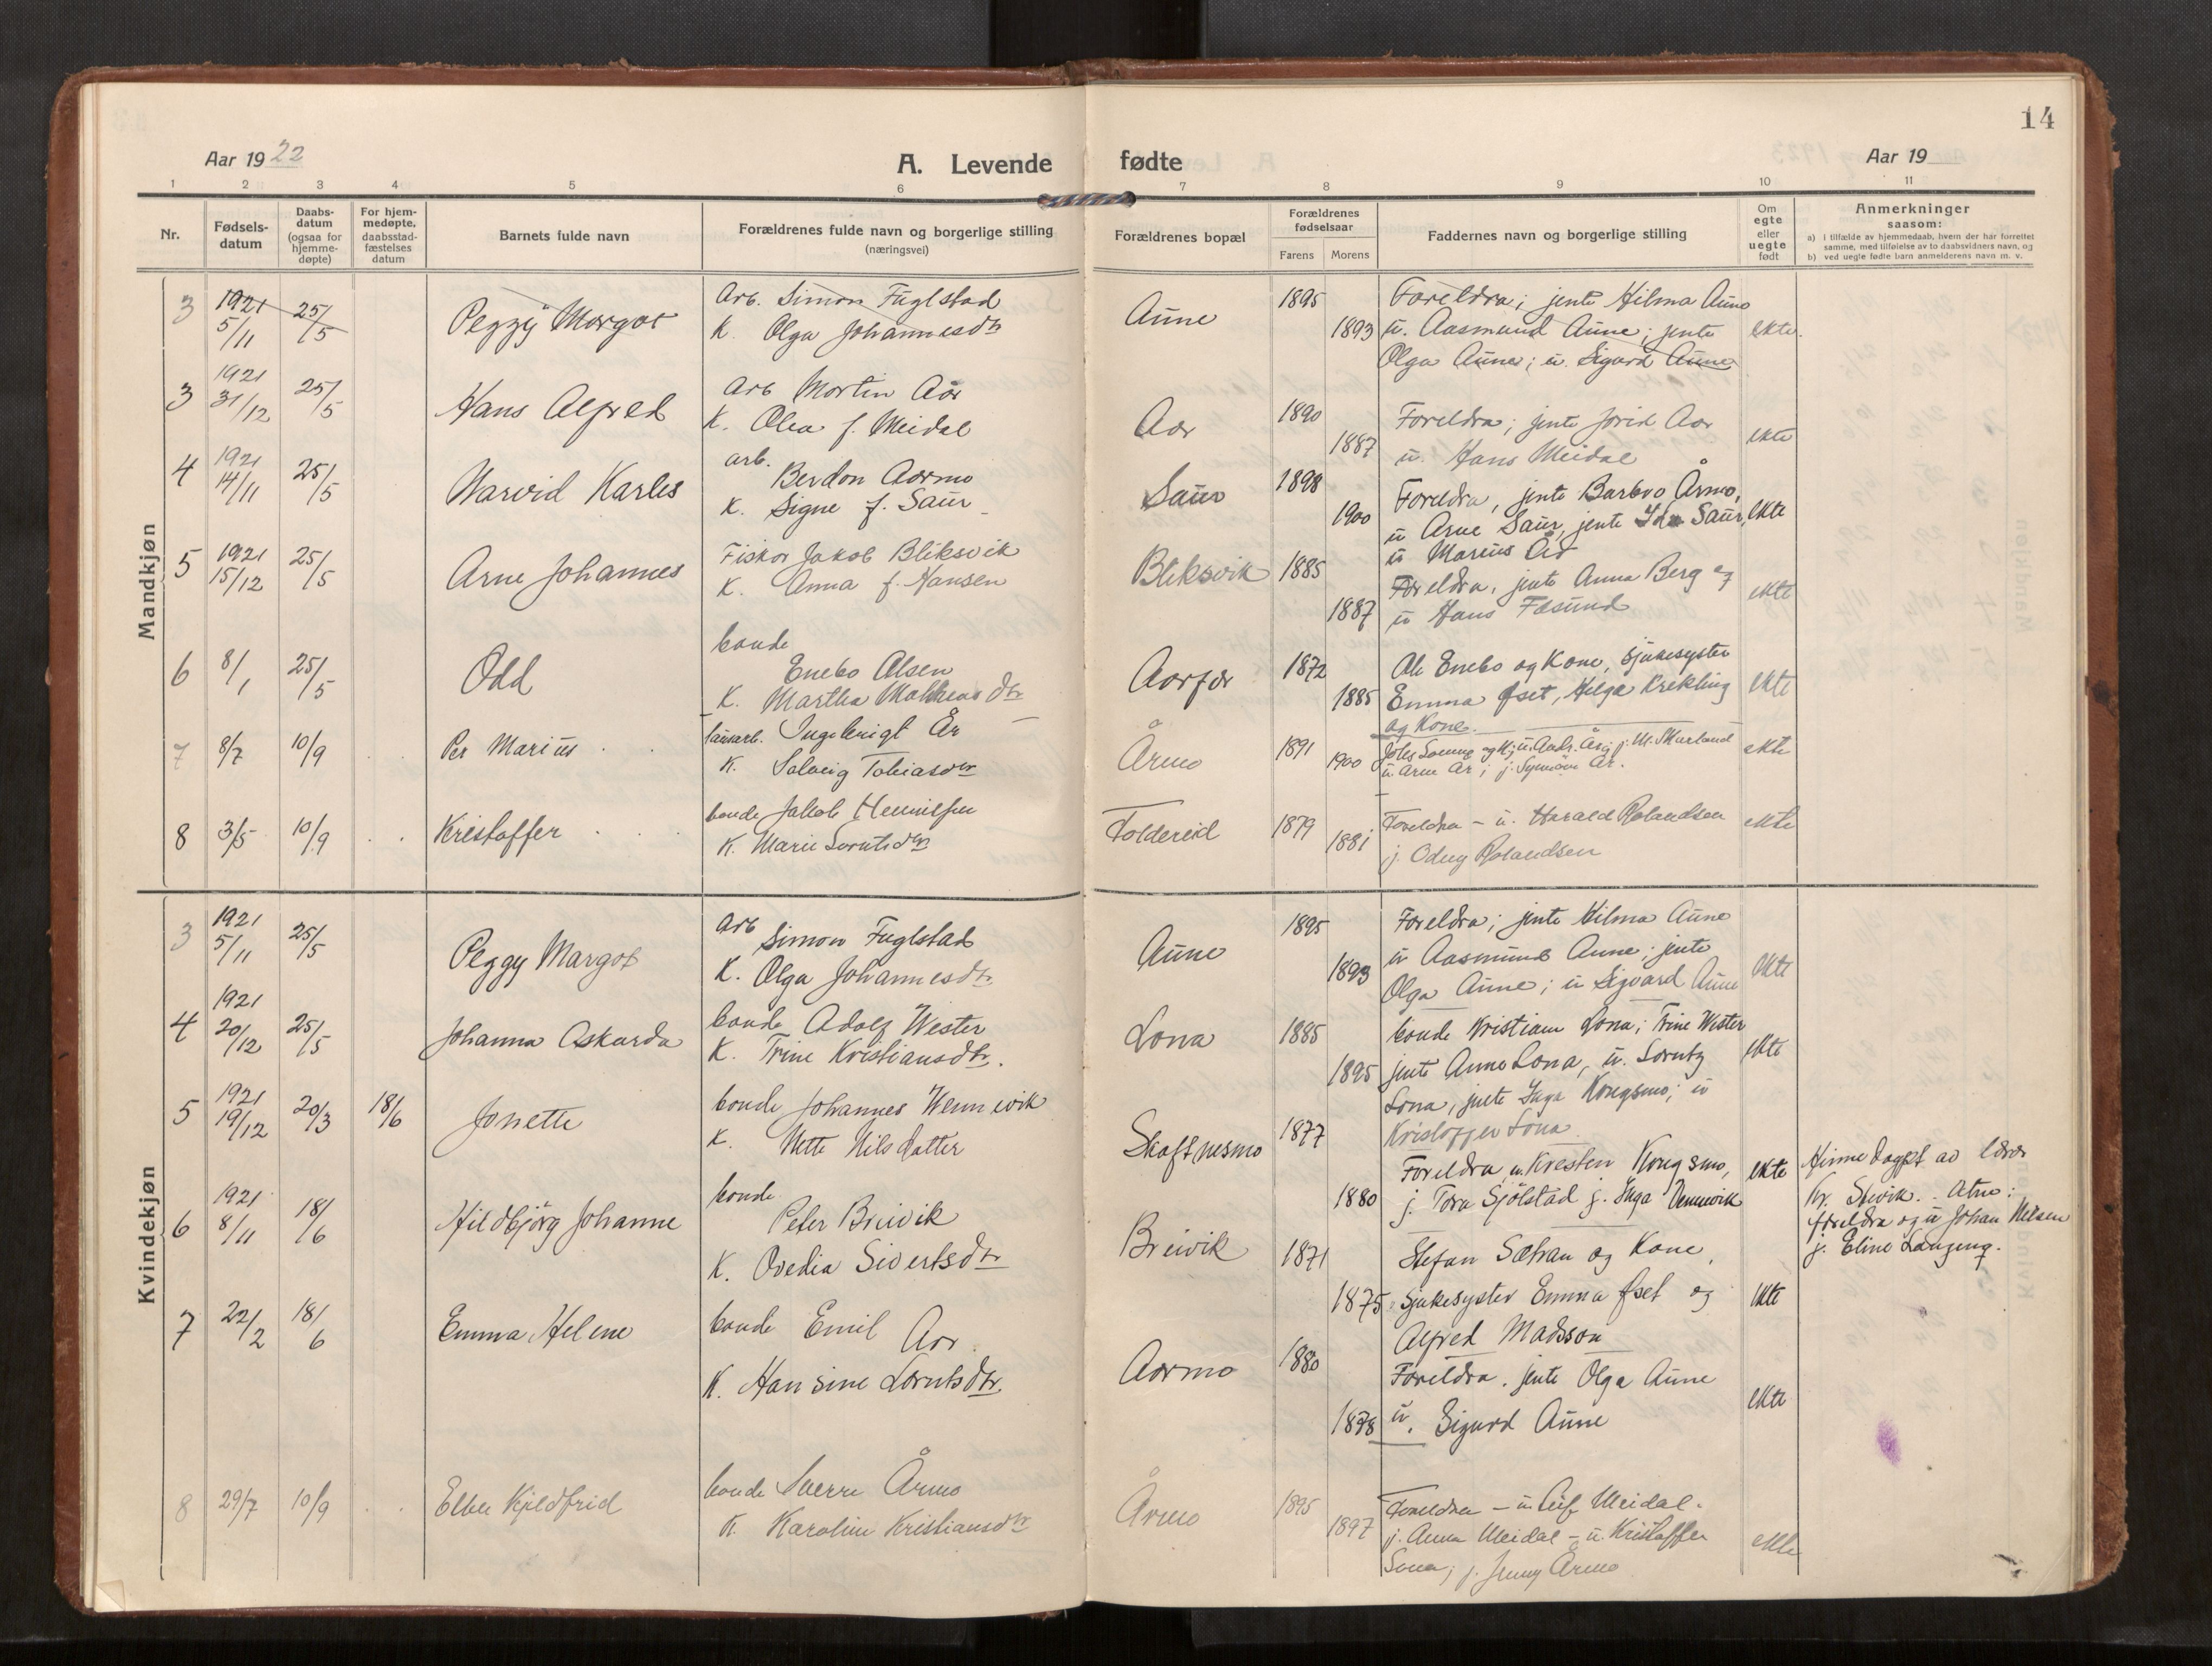 14
Aar 1922
A. Levende fødte
Aar 19
1 2 3 4 5 6 7 8 9 10 11
Nr.
Fødsels-
datum
Daabs-
datum
(ogsaa for
hjemme-
døpte)
For hjem-
medøpte,
daabsstad-
fæstelses
datum
Barnets fulde navn
Forældrenes fulde navn og borgerlige stilling
(næringsvei)
Forældrenes bopæl
Forældrenes
fødselsaar
Farens Morens
Faddernes navn og borgerlige stilling
Om
egte
eller
uegte
født
Anmerkninger
saasom:
a) i tilfælde av hjemmedaab, hvem der har forrettet
samme, med tilføielse av to daabsvidners navn, og
b) ved uegte fødte barn anmelderens navn m. v.
Mandkjøn
3 1921 5/11 25/5 Peggy Margot
Arb. Simon Fuglstad
K. Olga Johannesdtr
Aune 1895 1893
Foreldra; jente Hilma Aune
u. Aasmund Aune; jente
Olga Aune; u. Sigurd Aune
ekte.
3 1921 31/12 25/5 Hans Alfred
Arb Mortin Aar
K. Olea f. Meidal
Aar 1890 1887
Foreldra; jente Jorid Aar
u. Hans Meidal
ekte
4 1921 14/11 25/5 Harvid Karles
arb.
Berdon Aarmo
K. Signe f. Saur
Saur 1898 1900
Foreldra, jente Barbro Årmo,
u Arne Saur, jente Ida Saur,
u Marius År
ekte
5 1921 15/12 25/5 Arne Johannes
Fisker Jakob Bliksvik
K. Anna f. Hansen
Bliksvik 1885 1887
Foreldra, jente Anna Berg og
u Hans Fæsund
ekte
6 8/1 25/5 Odd
bonde
Enebo Olsen
K. Martha dtr
Aarfor 1872 1885
Ole Enebo og Kone, Sjukesyster
Emma Øset, Helge Krekling
og Kone.
ekte
7 8/7 10/9 Per Marius
Ingebrigt År
K. Solveig Tobiasdtr
Årmo 1891 1900
u. Andr. År; j. M. Murland
u. Arne År; j. Synnöve År.
ekte
8 3/5 10/9 Kristoffer
bonde Jakob
K. Marie Lorntsdtr
Foldereid 1879 1881
Foreldra - u. Harald Rolandsen
j. Odny Rolandsen
ekte
Kvindekjøn
3 1921 5/11 25/5 Peggy Margot
Arb
Simon Fuglstad
K. Olga Johannesdtr.
Aune 1895 1893
Foreldra; jente Hilma Aune
u Aasmund Aune; jente
Olga Aune; u Sigvard Aune
ekte
4 1921 20/12 25/5 Johanna Oskarda
bonde Adolf Wester
K. Trine Kristiansdtr.
Lona 1885 1895
bonde Kristian Lona; Trine Wester
jente Anna Lona, u. Lorntz
Lona, jente Inga Kongsmo; u
Kristoffer Lona
ekte
5 1921 19/12 20/3 18/6 Jonette
bonde Johannes Wennevik
K. Mette Nils datter
Skaftnesmo 1877 1880
Foreldra, u. Kresten Kongsmo,
j. Tora Sjölstad j. Inga Vennevik
ekte
Hjemedøypt av lærar
Kr. Skvik. - Atne:
foreldra og u Johan Nilsen
j. Eline Langeng.
6 1921 8/11 18/6 Hildbjørg Johanne
bonde
Peter Breivik
K. Ovedia Sivertsdtr
Breivik 1871 1875
Stefan Sætran og Kone,
Sjukesyster Emma Øset og
Alfred Madsson
ekte
7 22/2 18/6 Emma Helene
bonde Emil Aar
K. Hansine Lorntsdtr.
Aarmo 1880 1878
Foreldra. jente Olga Aune
u. Sigurd Aune
ekte
8 29/7 10/9 Kjeldfrid
bonde Sverre Årmo
K. Karoline Kristiansdtr
Årmo 1895 1897
Foreldra - u. Leif Meidal.
j. Anna Meidal - u. Kristoffer
Lona; j. Jenny Årmo
ekte